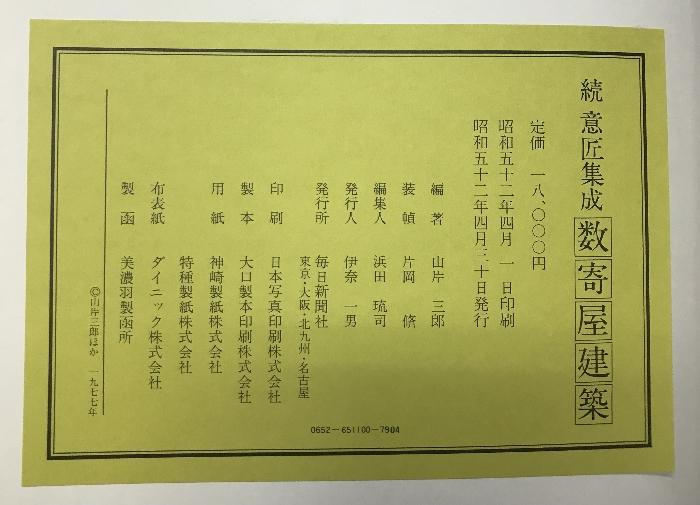 続 意匠集成 数寄屋建築
定価 一八、〇〇〇円
昭和五十二年四月 一 日印刷
昭和五十二年四月三十日発行
編著 山岸 三郎
装幀 片岡 脩
編集人 浜田 琉司
発行人 伊奈 一男
発行所 毎日新聞社
東京・大阪・北九州・名古屋
印刷 日本写真印刷株式会社
製本 大口製本印刷株式会社
用紙 神崎製紙株式会社
特種製紙株式会社
布表紙 ダイニック株式会社
製函 美濃羽製函所
©山岸三郎ほか 一九七七年
0652－651100－7904